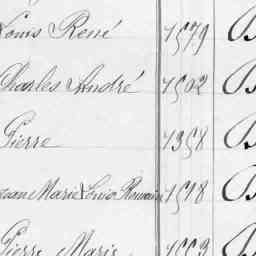 Louis René 1579
Charles André 1502
Pierre 1358
Jean Marie Louis Romain 1518
Pierre Marie 1559